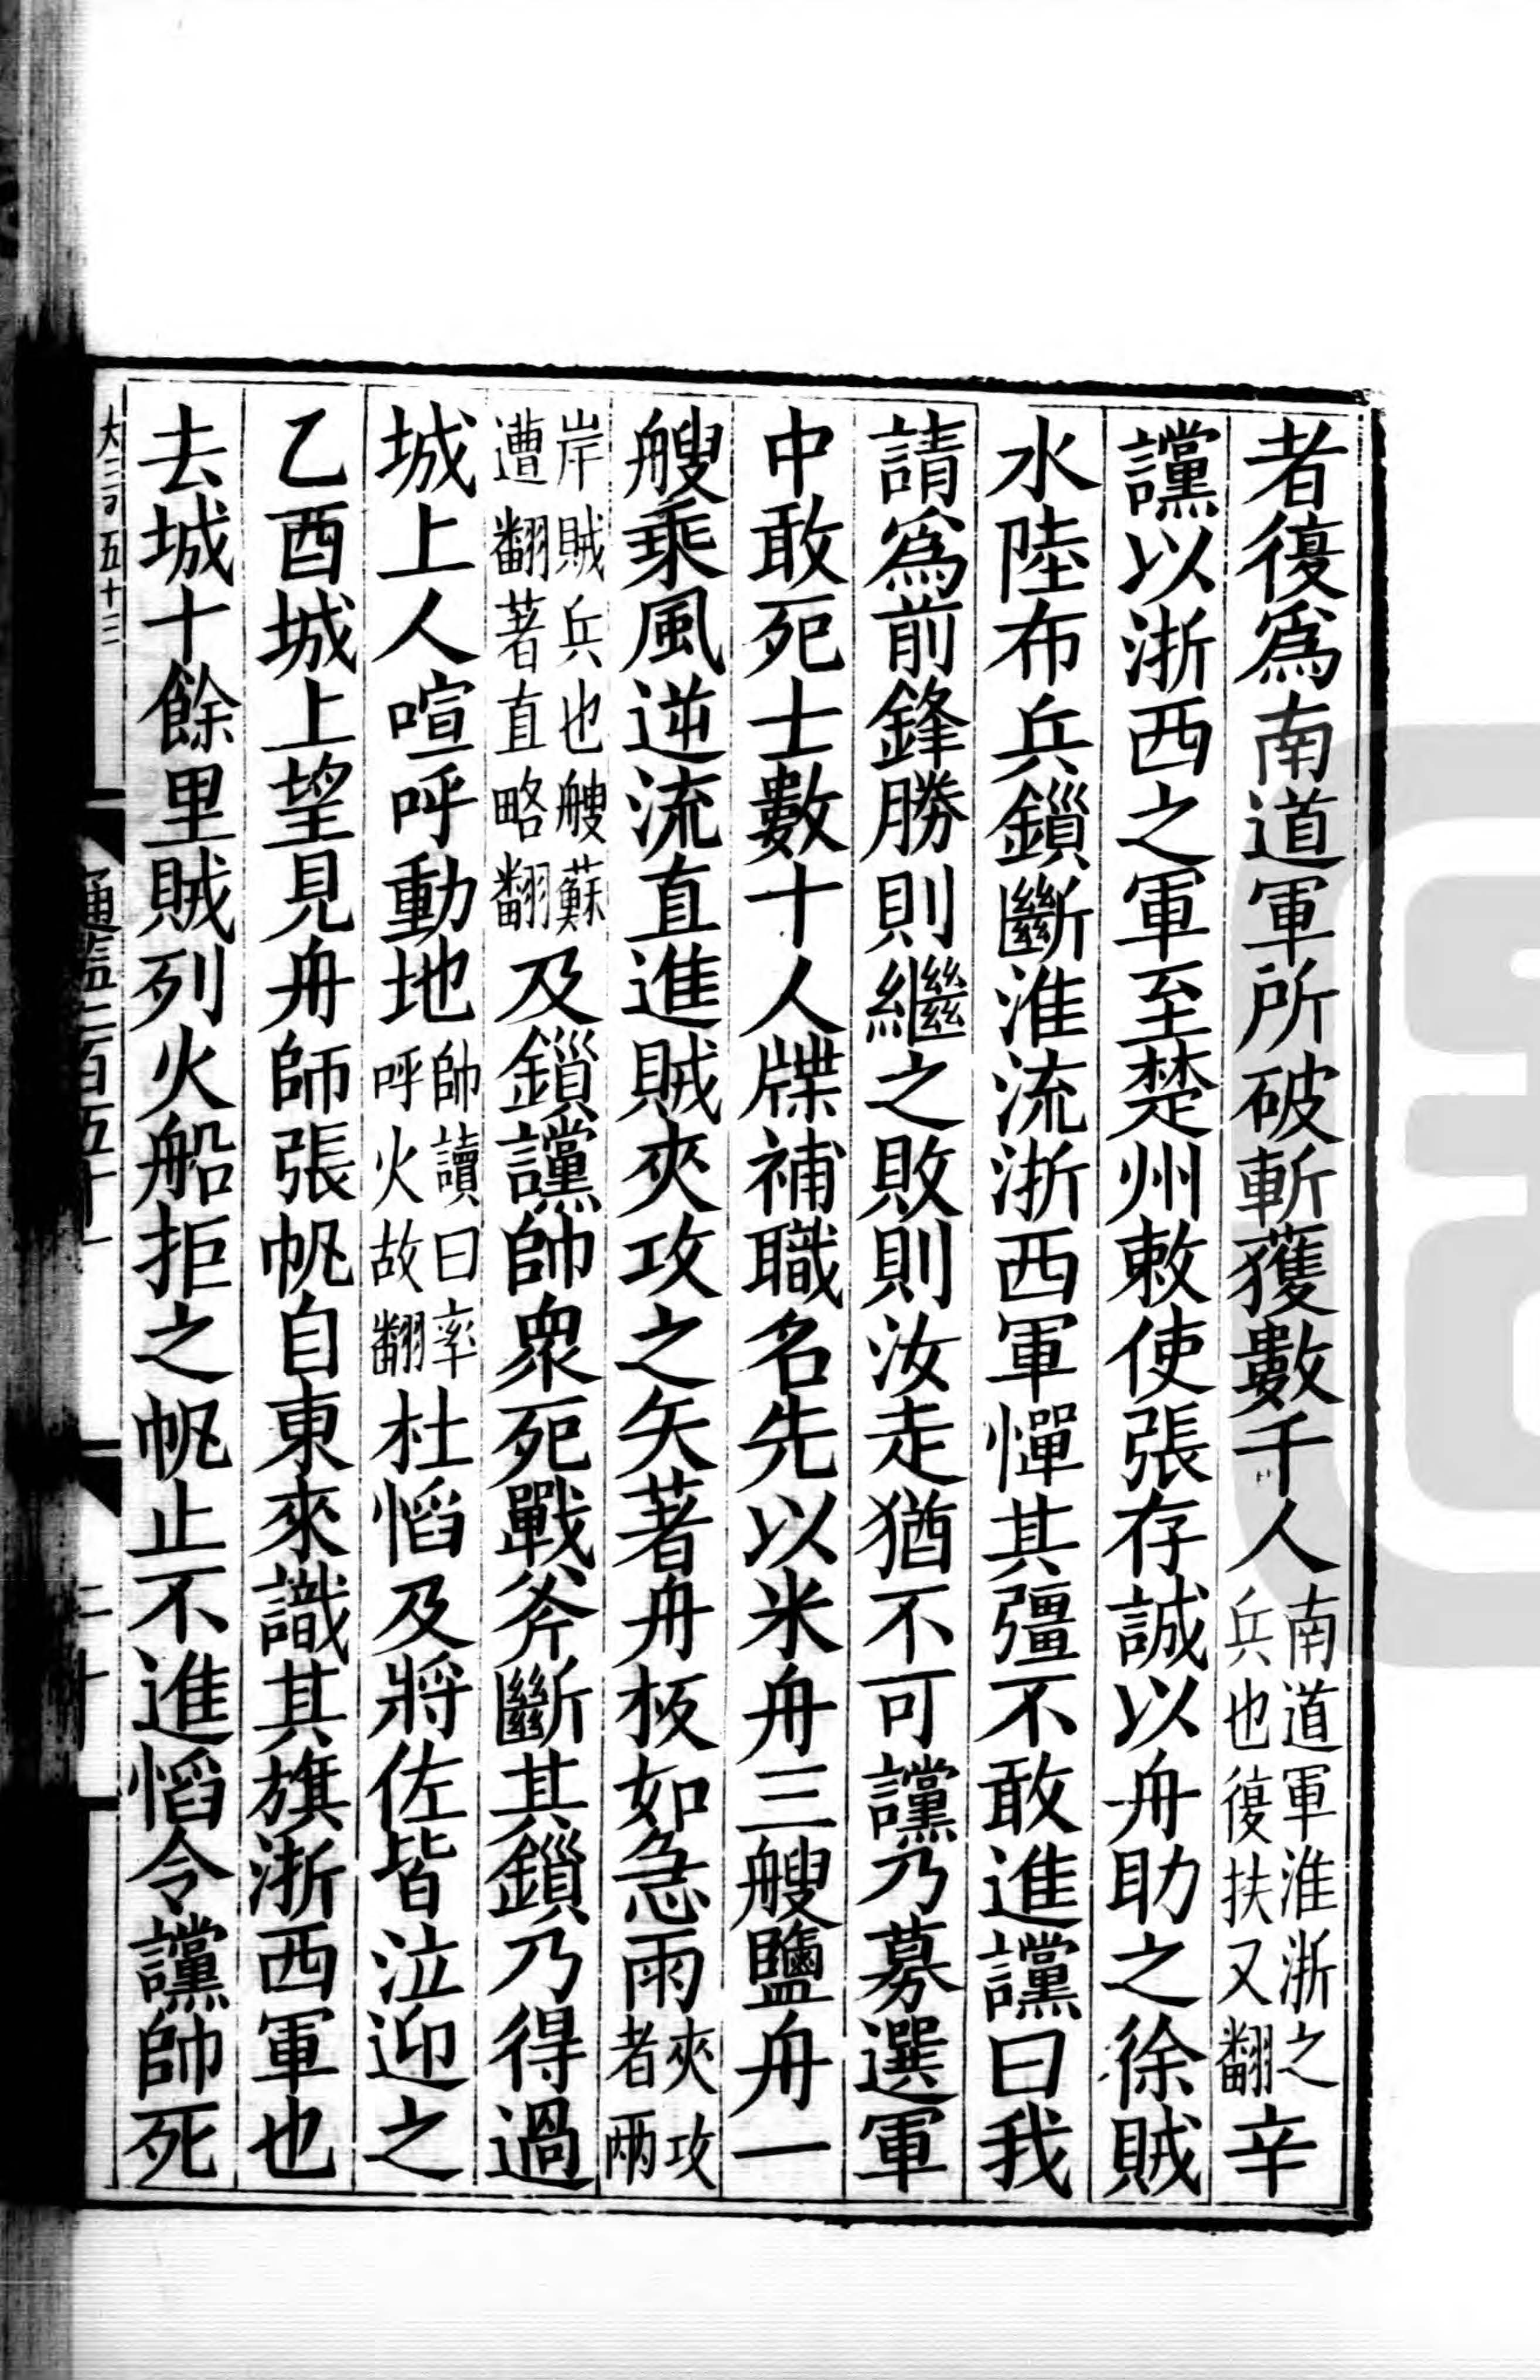 者復爲南道軍所破斬獲數千人南道軍淮浙之兵也復扶又翻辛
讜以浙西之軍至楚州敕使張存誠以舟助之徐賊
水陸布兵鎻斷淮流浙西軍憚其彊不敢進讜曰我
請爲前鋒勝則繼之敗則汝走猶不可讜乃募選軍
中敢死士數十人牒補職名先以米舟三艘鹽舟一
艘乘風逆流直進賊夾攻之矢著舟板如急雨夾攻者兩
岸賊兵也艘蘇遭翻著直略翻及鎻讜帥衆死戰斧斷其鎻乃得過
城上人喧呼動地帥讀曰率呼火故翻杜慆及將佐皆泣迎之
乙酉城上望見舟師張帆自東來識其旗浙西軍也
去城十餘里賊列火船拒之帆止不進慆令讜帥死
通鑑二百五十一
二十